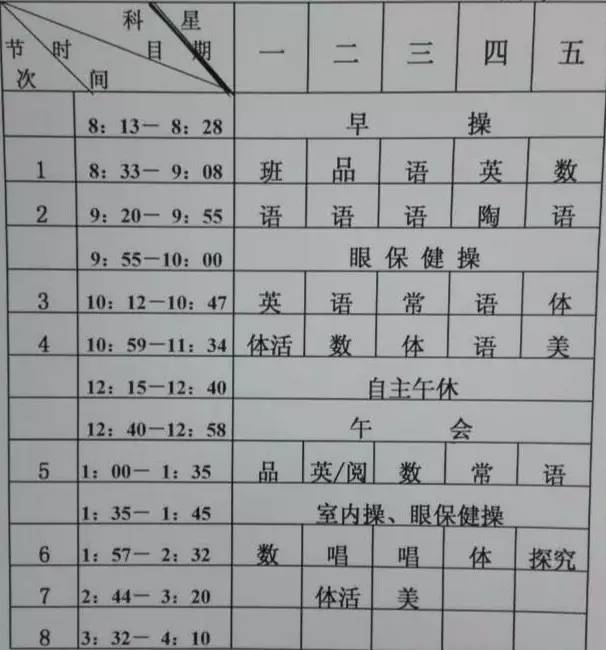 科 星
节 时 目 期 一 二 三 四 五
次 间
8：13－ 8：28 早 操
1 8：33－ 9：08 班 品 语 英 数
2 9：20－ 9：55 语 语 语 陶 语
9：55－10：00 眼 保 健 操
3 10：12－10：47 英 语 常 语 体
4 10：59－11：34 体活 数 体 语 美
12：15－12：40 自主午休
12：40－12：58 午 会
5 1：00－ 1：35 品 英/阅 数 常 语
1：35－ 1：45 室内操、眼保健操
6 1：57－ 2：32 数 唱 唱 体 探究
7 2：44－ 3：20 体活 美
8 3：32－ 4：10